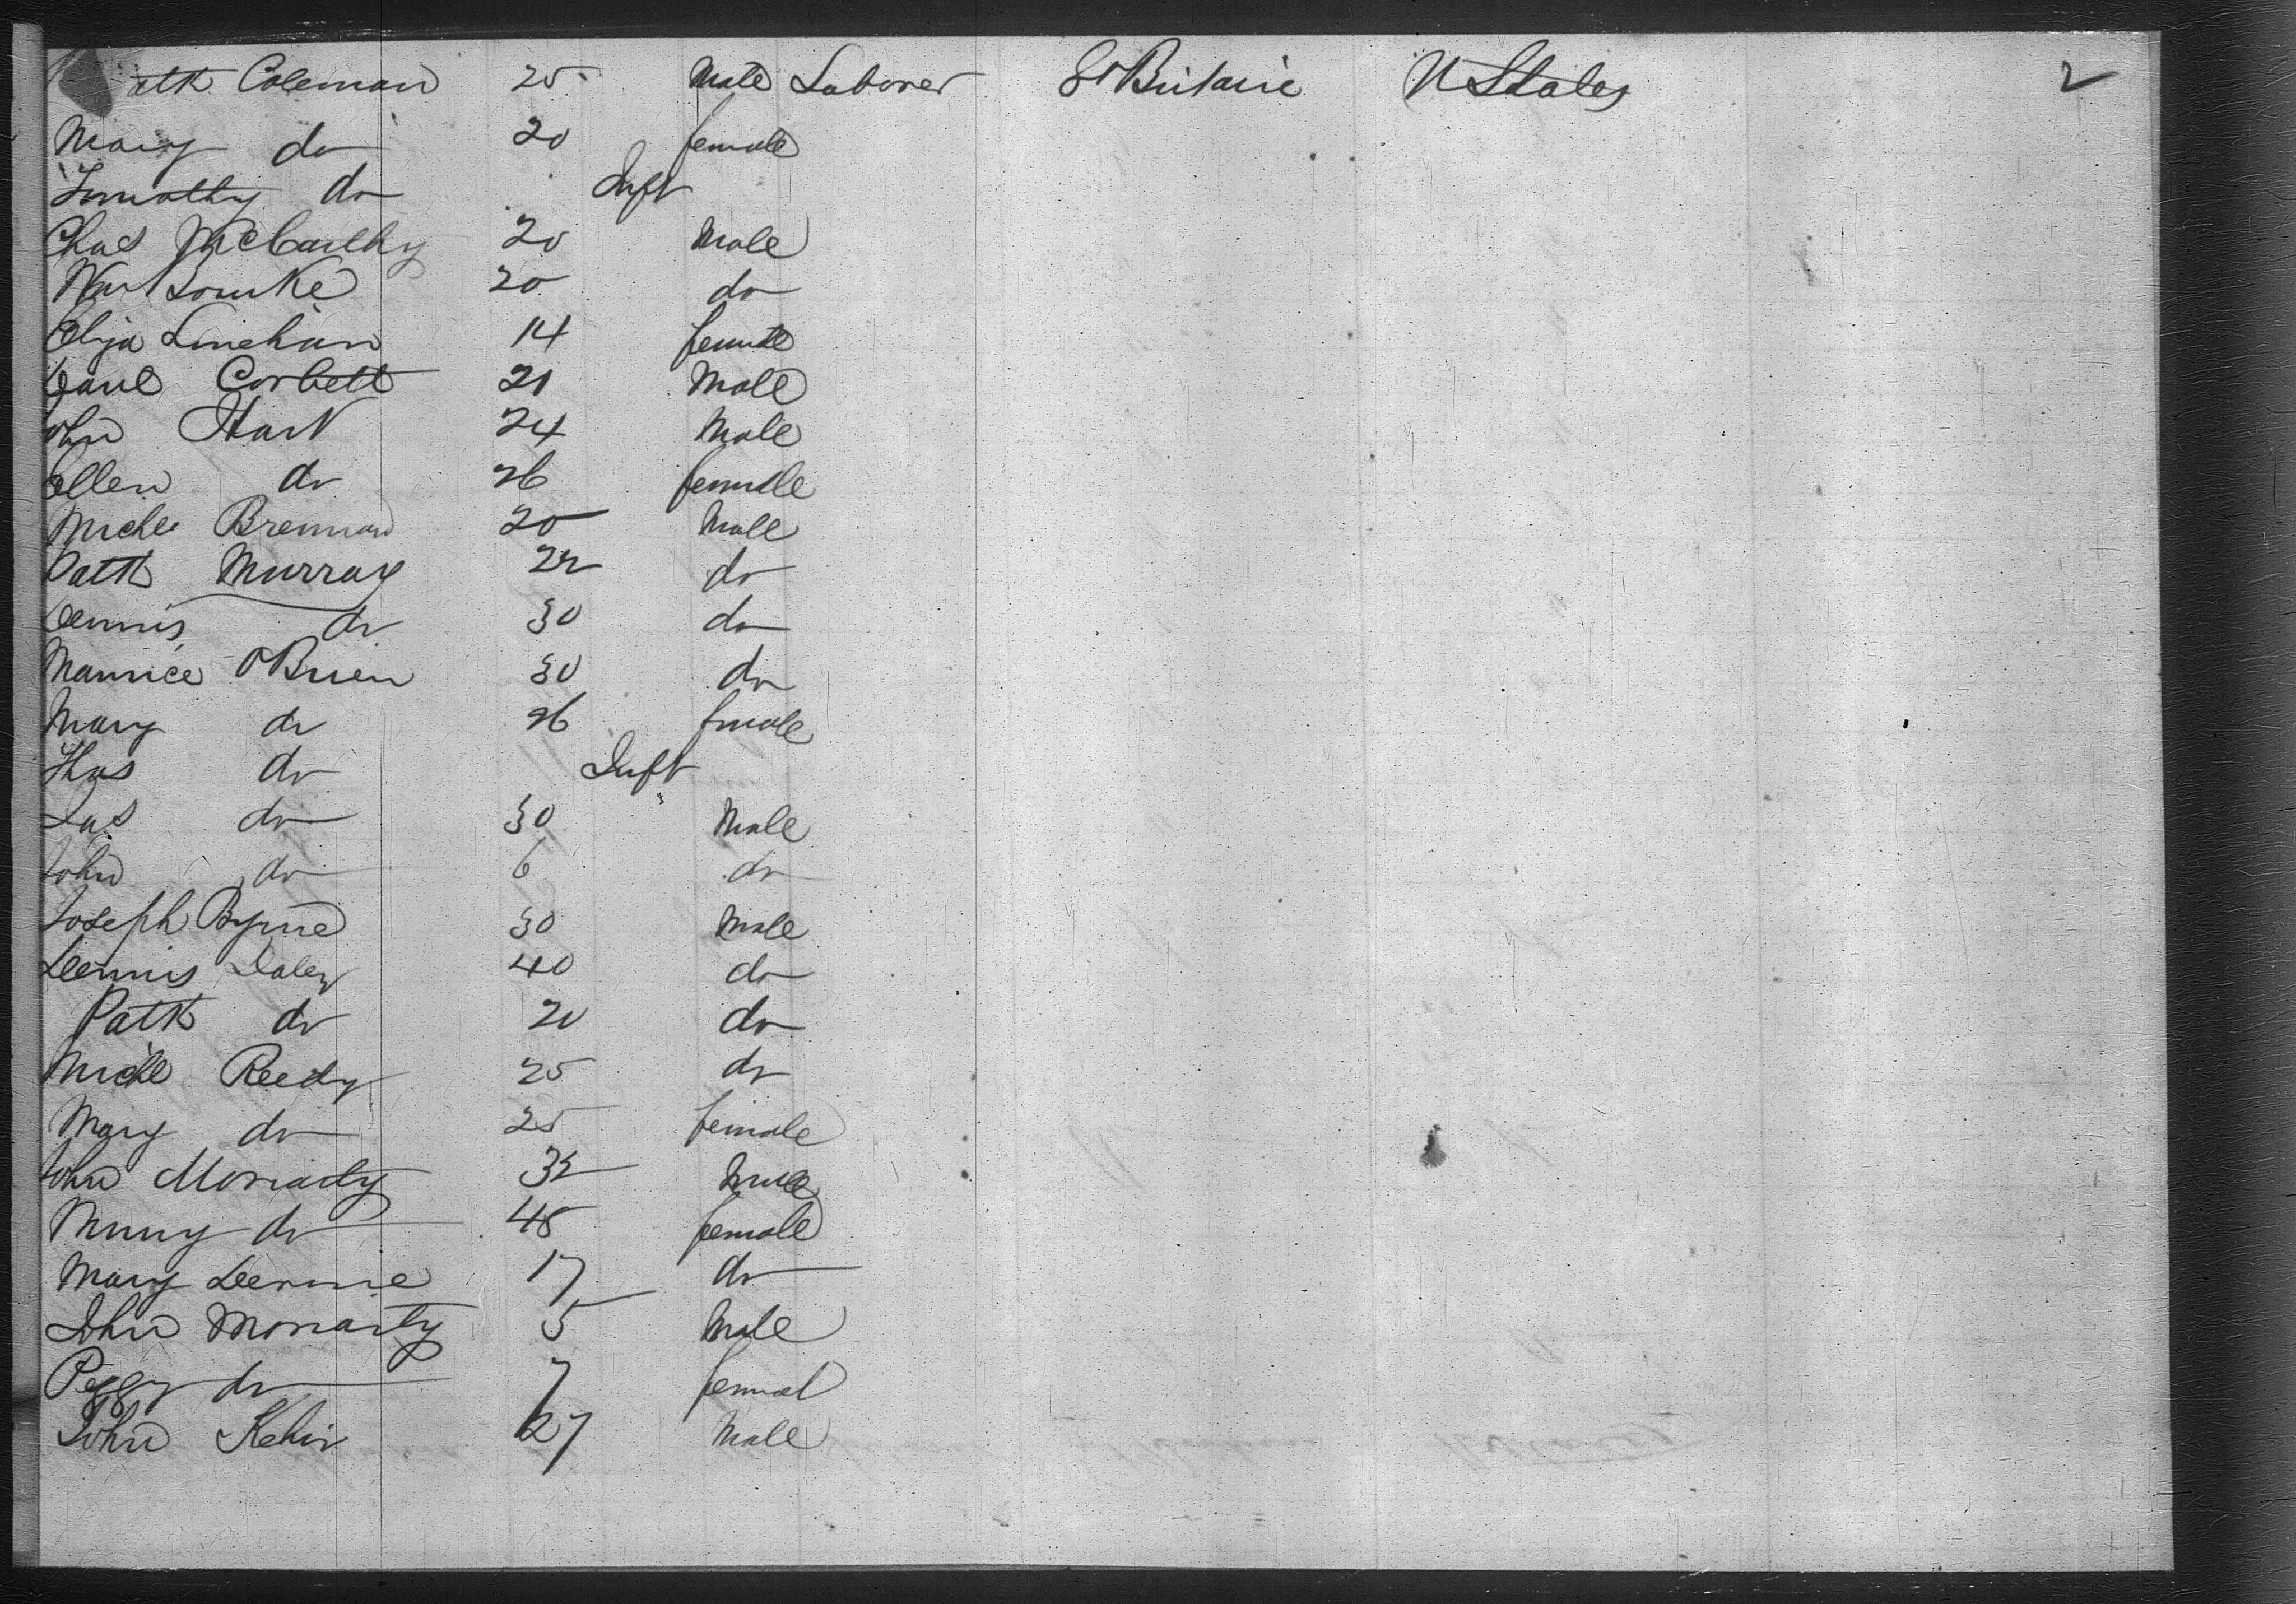 atk Coleman 25 Male Laborer Gt Britain U States 2
Mary do 20 female
Timothy do Inft
Chas McCarthy 20 Male
Wm Bourke 20 do
Eliza Linehan 14 female
Corbett 21 Male
John Hart 24 Male
Ellen do 26 female
Michl Brennan 20 Male
Patk Murray 22 do
Dennis do 30 do
Maurice OBrien 30 do
Mary do 26 fmale
Thos do Inft
Jas do 30 Male
John do 6 do
Joseph Byrne 30 Male
Dennis Daley 40 do
Patk do 20 do
Michl Reedy 25 do
Mary do 25 female
John Moriarty 32 Male
do 45 female
Mary 17 do
John Moriarty 5 Male
Peggy do 7 femal
John 27 Male